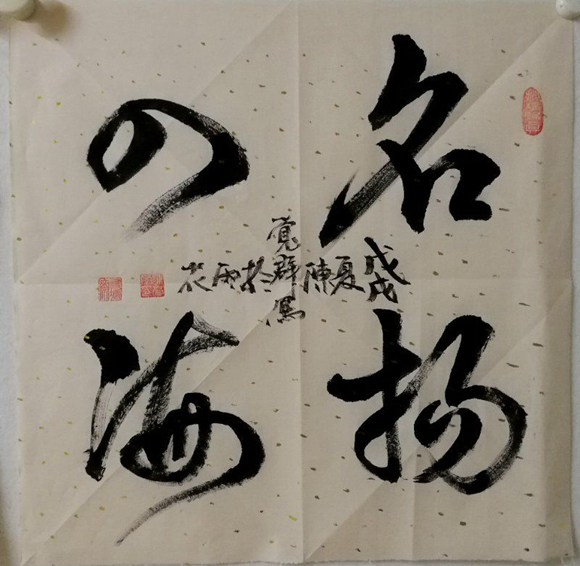 名扬
四海
戊戌夏陳覺群寫於雨花